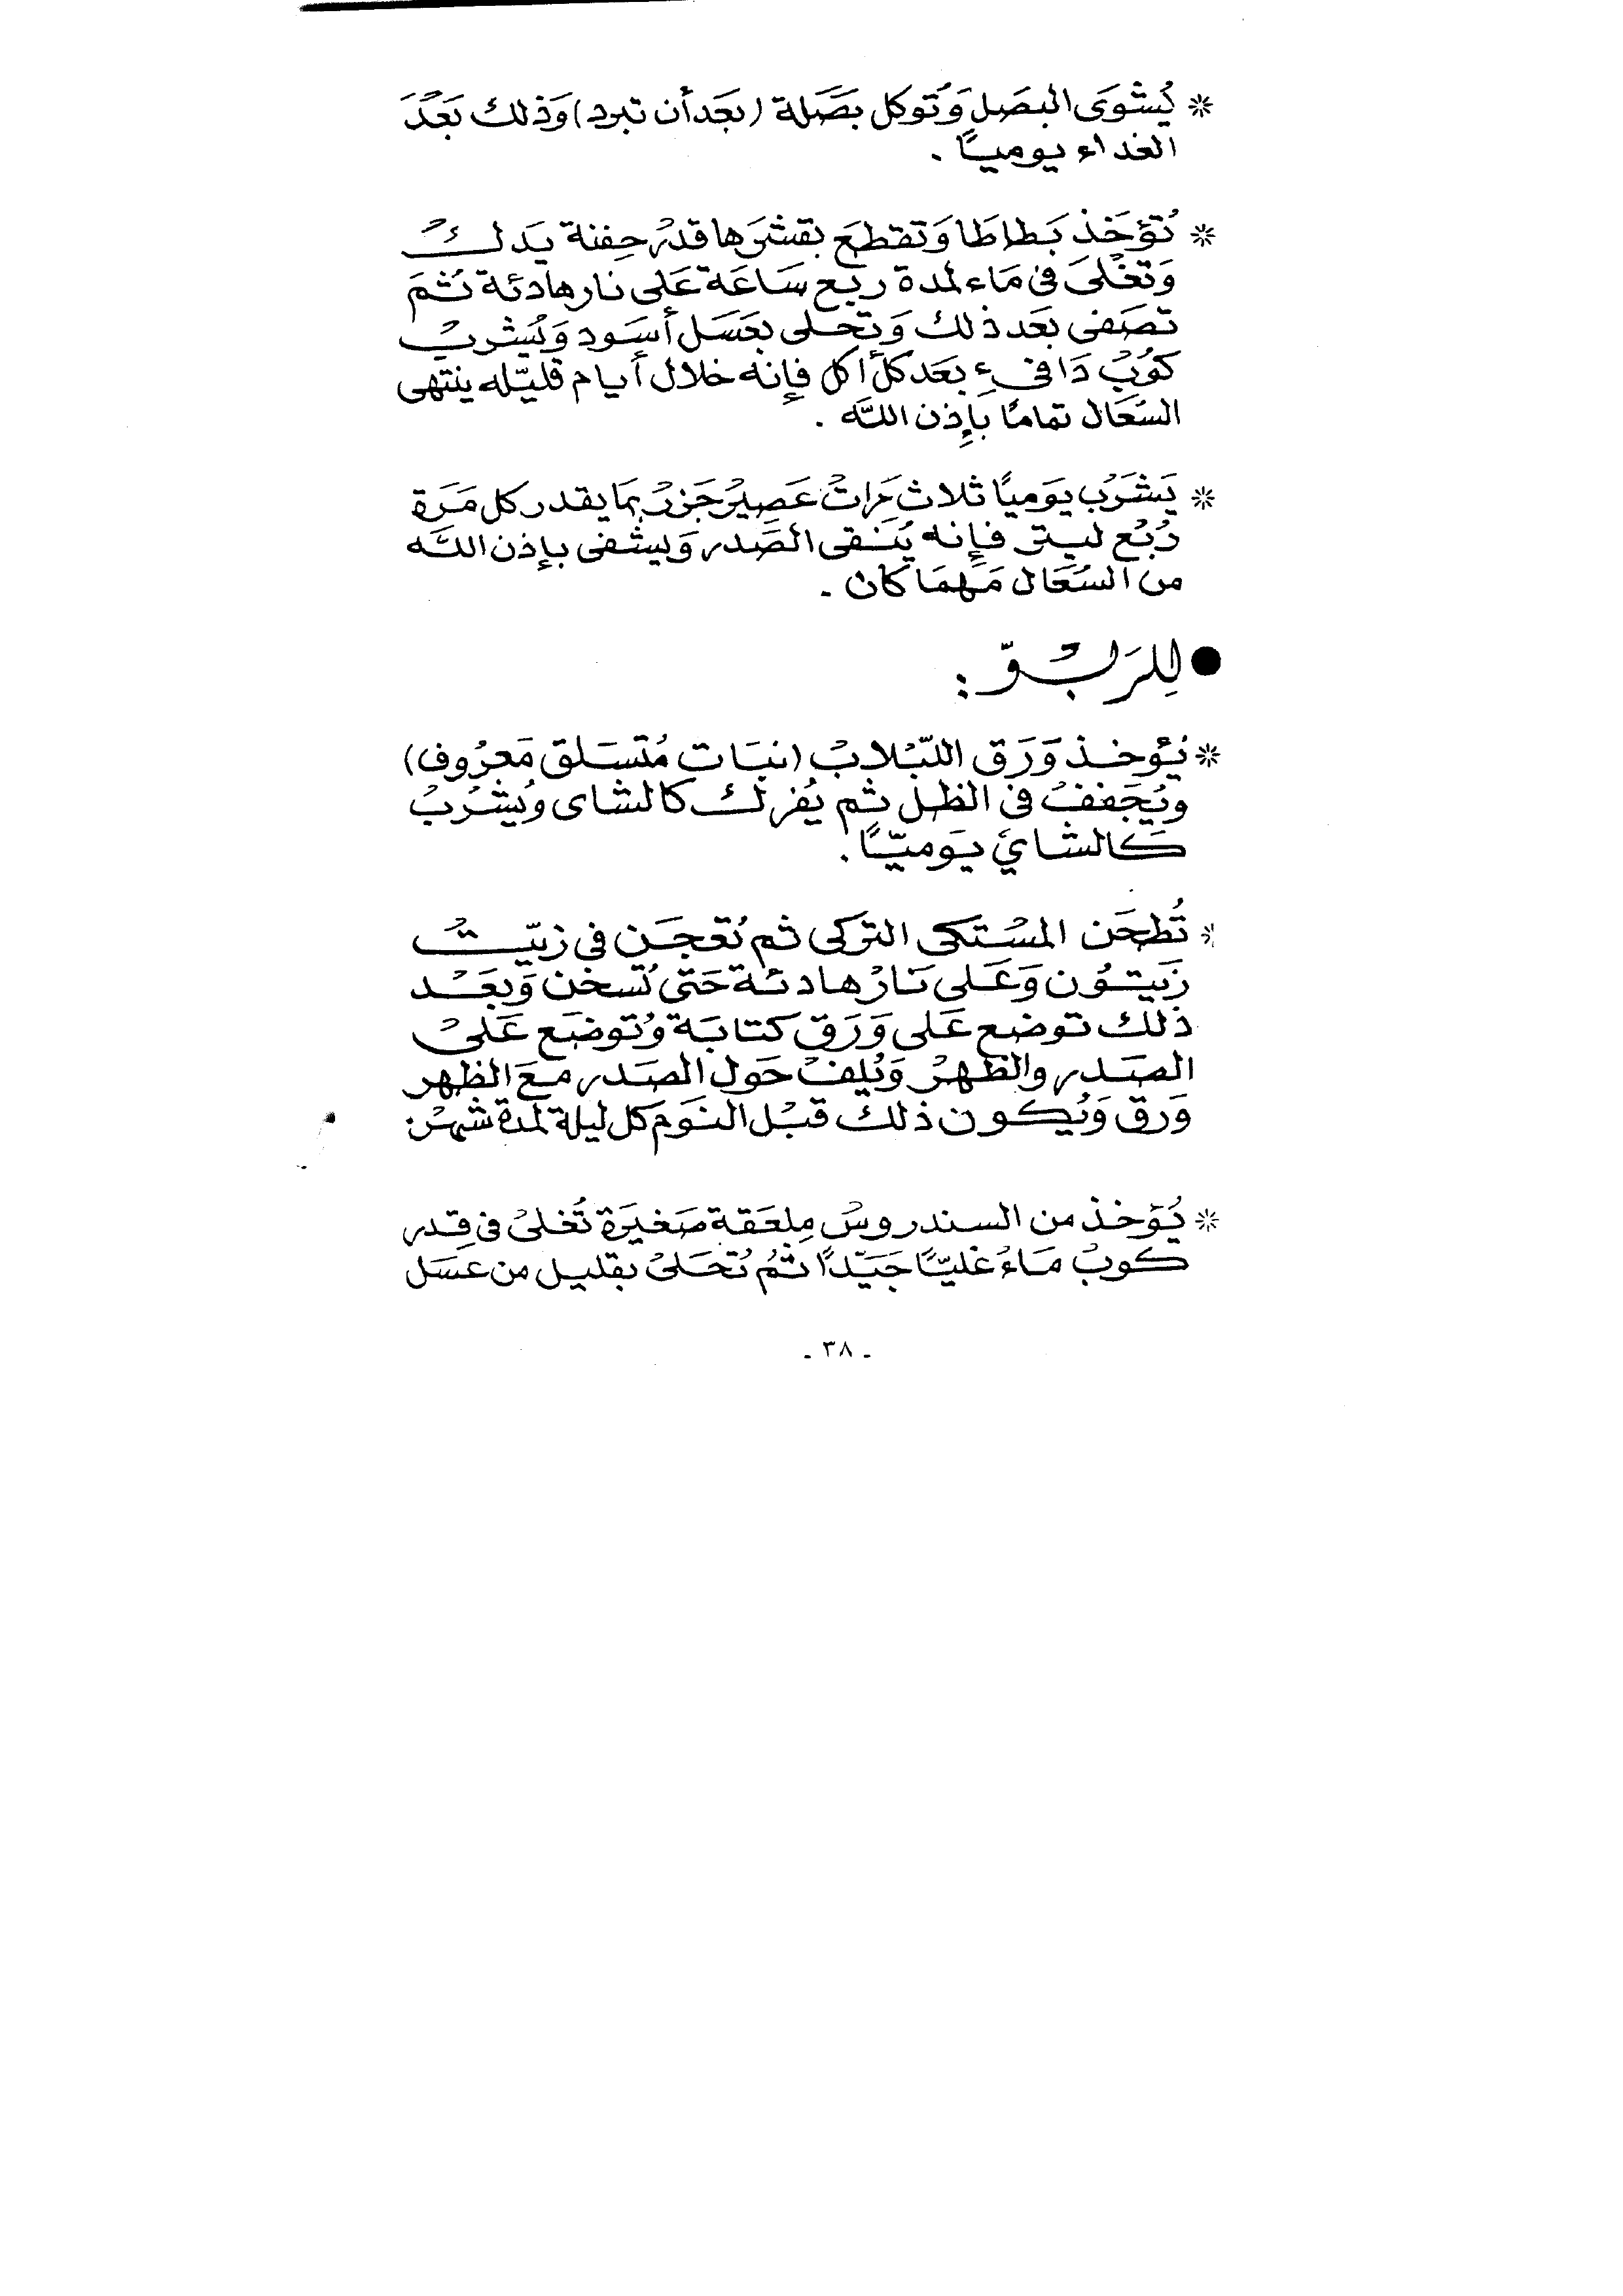 * يُشوَى البصَل وَتُوكل بصَلة (بعَد أن تبرد) وَذلك بَعْدَ
الغداء يوميًا .
* تُؤخَذ بَطاطَا وَتقطعَ بقشرَها قدْر حِفنة يَدلكْ
وَتغْلىَ فى مَاء لمدة ربع سَاعَة عَلى نار هادئة ثُمَ
تصَفى بعَد ذلك وَتحلى بعَسَل أسَود وَيُشربْ
كوُبْ دَافىء بعَد كل أكل فإنه خلال أيام قليّله ينتهى
السُعَال تمامًا بإذن اللَّه .
* يَشرَب يوَميًا ثلاث مَراتْ عَصِيرْ جَزرْ بمَا يقدر كل مَرَة
رُبْع ليتر فإنه يُنَقى الصَدر وَيشفى بإذن اللَّه
من السُعَال مَهمَا كان .
● لِلرَبْوّ :
* يُؤخذ وَرَق اللبّلابْ (نبَات مُتسَلق مَعرُوف)
ويُجَففْ فى الظل ثم يُفركْ كالشاى ويُشرَبْ
كالشايْ يوَميّاً .
* تُطحَن المسْتكى التركى ثم تُعجَن فى زيّتْ
زَيتوُن وَعَلى نَارْ هادئة حَتى تُسخن وَبعَدْ
ذلك توضع عَلى وَرَق كتابَة وُتوضَع عَلىْ
الصَدر والظهرْ وَيُلفْ حَول الصَدر مَعَ الظهر
وَرق وَيُكون ذلك قبْل النوَم كل ليلة لمدة شهْر.
* يُؤخذ من السندروسْ مِلعَقة صَغيرَة تُغلىْ فى قِدر
كوبْ مَاءْ غليّاً جَيّداً ثمُ تُحَلىْ بقليل من عسَل
- ٣٨ -